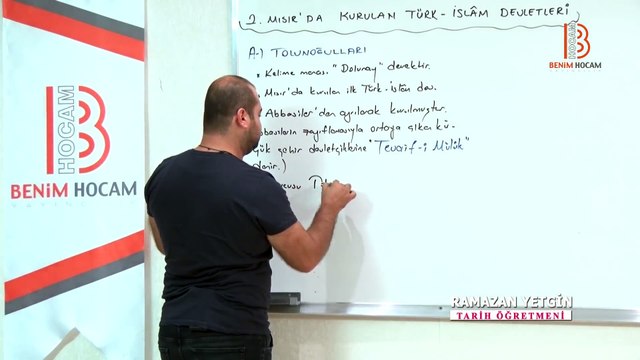 2. MISIR'DA KURULAN TÜRK-İSLÂM DEVLETLERİ
A-) TOLUNOĞULLARI
• Kelime manası "Dolunay" demektir.
• Mısır'da kurulan ilk Türk-İslam dev.
Abbasiler'den ayrılarak kurulmuştur.
zayıflamasıyla ortaya çıkan kü-
şehir devletçiklerine "Tevaif-i Mülûk"
denir.)
HOCAM
BENİM HOCAM
HOCAM
BENİM HOCAM
RAMAZAN YETGİN
TARİH ÖĞRETMENİ